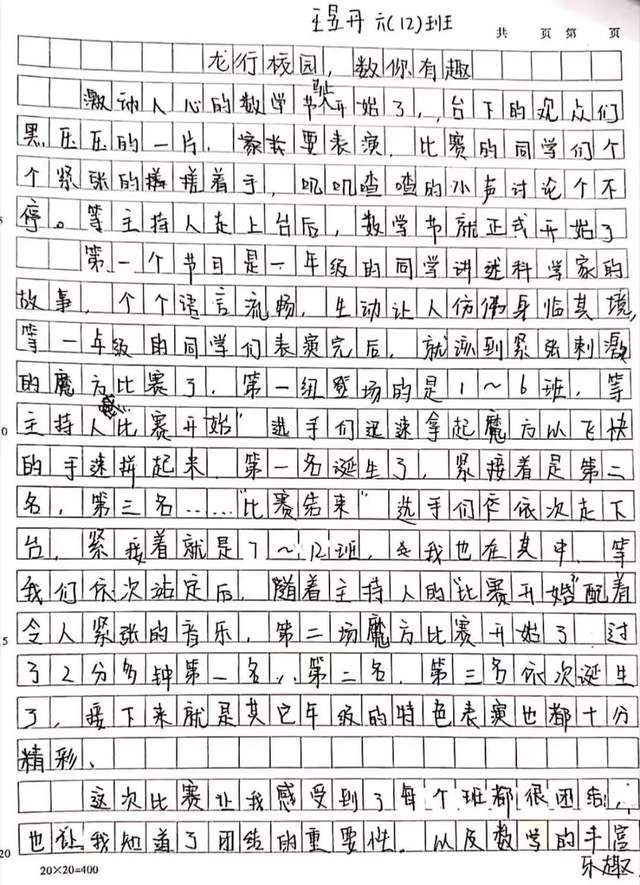 王昱丹 六(12)班
共 页 第 页
龙行校园,数你有趣
激动人心的数学节开始了,台下的观众们
黑压压的一片,家长要表演、比赛的同学们个
个紧张的搓搓着手,叽叽喳喳的小声讨论个不
停。等主持人走上台后,数学节就正式开始了
第一个节目是一年级的同学讲述科学家的
故事,个个语言流畅,生动让人仿佛身临其境,
等一年级的同学们表演完后,就派到紧张刺激
的魔方比赛了,第一组登场的是1~6班,等
主持人喊"比赛开始"选手们迅速拿起魔方以飞快
的手速拼起来,第一名诞生了,紧接着是第二
名,第三名……"比赛结束"选手们依次走下
台,紧接着就是7~12班,我也在其中,等
我们依次站定后,随着主持人的"比赛开始"配着
令人紧张的音乐,第二场魔方比赛开始了 过
了2分多钟第一名、第二名、第三名依次诞生
了,接下来就是其它年级的特色表演也都十分
精彩、
这次比赛让我感受到了每个班都很团结,
也让我知道了团结的重要性,以及数学的丰富
乐趣
5
0
5
20
20×20=400